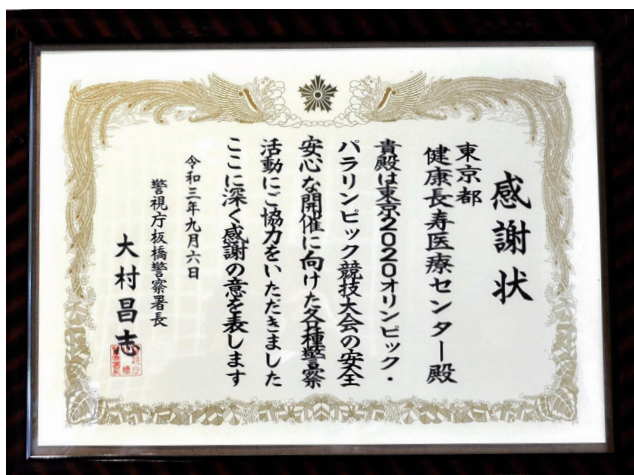 感謝状
東京都
健康長寿医療センター殿
貴殿は東京2020オリンピック・
パラリンピック競技大会の安全
安心な開催に向けた各種警察
活動にご協力をいただきました
ここに深く感謝の意を表します
令和三年九月六日
警視庁板橋警察署長
大村昌志